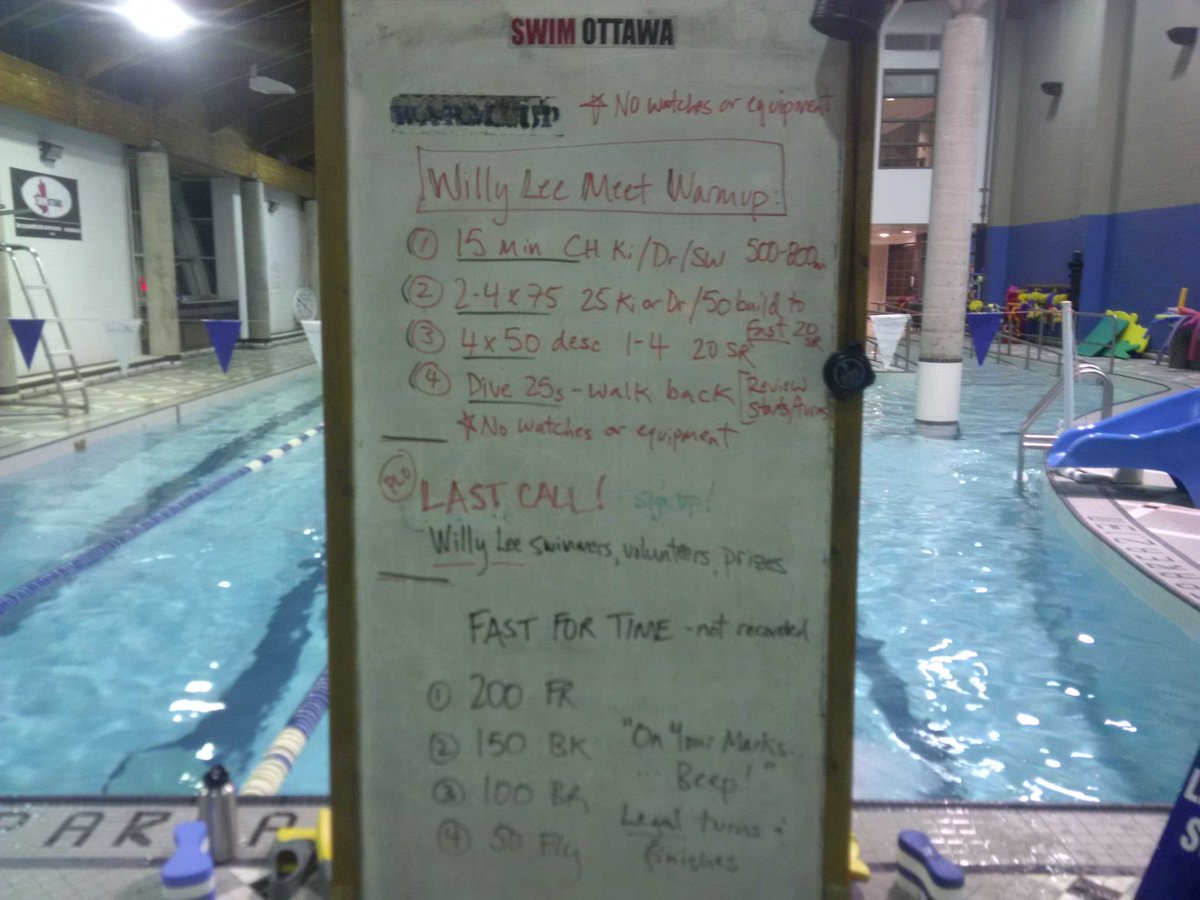 SWIM OTTAWA
WARMUP
* No watches or equipment
Willy Lee Meet Warmup:
① 15 min CH Ki/Dr/SW 500-800m
② 2-4 x 75 25 Ki or Dr/50 build to fast 20 SR
③ 4 x 50 desc 1-4 20 SR
④ Dive 25s - walk back [Review starts/turns
* No watches or equipment
LAST CALL! sign up!
Willy Lee swimmers, volunteers, prizes
FAST FOR TIME - not recorded
① 200 FR
② 150 BK "On Your Marks...
... Beep!"
③ 100 BR
Legal turns &
④ 50 Fly
finishes
OTTAWA
PAR